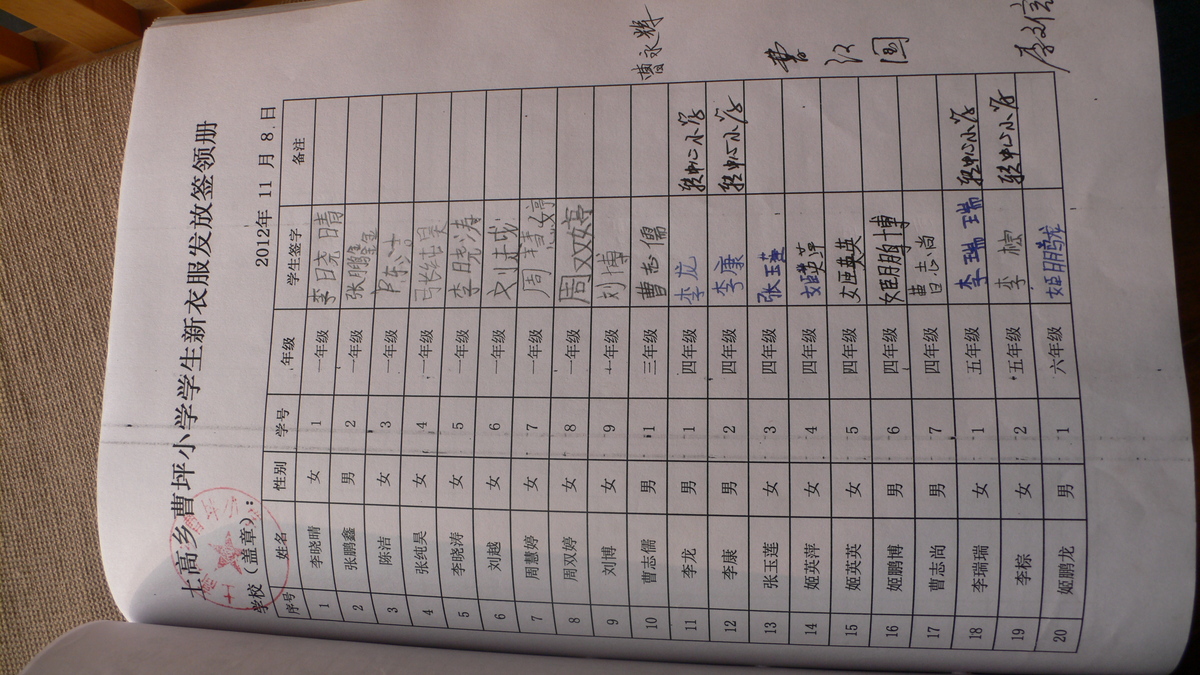 土高乡曹坪小学学生新衣服发放签领册
学校（盖章）： 2012年 11 月 8 日
序号 姓名 性别 学号 年级 学生签字 备注
1 李晓晴 女 1 一年级 李晓晴
2 张鹏鑫 男 2 一年级 张鹏鑫
3 陈洁 女 3 一年级 陈洁
4 张纯昊 女 4 一年级 张纯昊
5 李晓涛 女 5 一年级 李晓涛
6 刘越 女 6 一年级 刘
7 周慧婷 女 7 一年级 周慧婷
8 周双婷 女 8 一年级 周双婷
9 刘博 女 9 一年级 刘博
10 曹志儒 男 1 三年级 曹志儒
11 李龙 男 1 四年级 李龙 转中心小学
12 李康 男 2 四年级 李康 转中心小学
13 张玉莲 女 3 四年级 张玉莲
14 姬英萍 女 4 四年级 姬英萍
15 姬英英 女 5 四年级 姬英英
16 姬鹏博 男 6 四年级 姬鹏博
17 曹志尚 男 7 四年级 曹志尚
18 李瑞瑞 女 1 五年级 李瑞瑞 转中心小学
19 李棕 女 2 五年级 李棕 转中心小学
20 姬鹏龙 男 1 六年级 姬鹏龙
曹永辉
曹江国